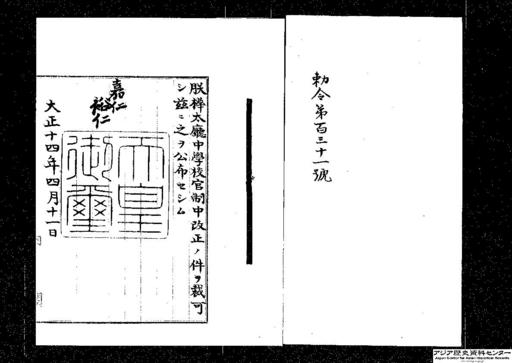 勅令第百三十一號
朕樺太廳中學校官制中改正ノ件ヲ裁可
シ茲ニ之ヲ公布セシム
嘉仁
裕仁
天皇
御璽
大正十四年四月十一日
アジア歴史資料センター
Japan Center for Asian Historical Records